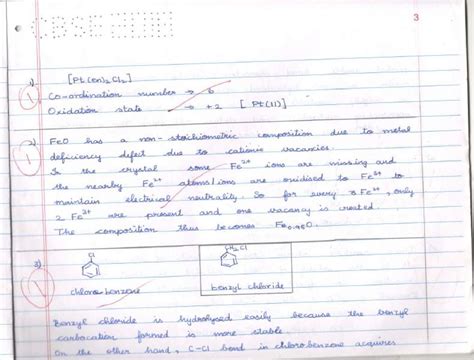 CBSE
3
1) [Pt(en)₂Cl₂]
1 Co-ordination number → 6
Oxidation state → +2 [Pt(II)]
2) FeO has a non-stoichiometric composition due to metal
1 deficiency defect due to cationic vacancies
In the crystal some Fe²⁺ ions are missing and
the nearby Fe²⁺ atoms/ions are oxidised to Fe³⁺ to
maintain electrical neutrality. So for every 3 Fe²⁺, only
2 Fe³⁺ are present and one vacancy is created.
The composition thus becomes Fe₀.₉₅O.
3) Cl CH₂Cl
1 chlorobenzene benzyl chloride
Benzyl chloride is hydrolysed easily because the benzyl
carbocation formed is more stable.
On the other hand, C-Cl bond in chlorobenzene acquires